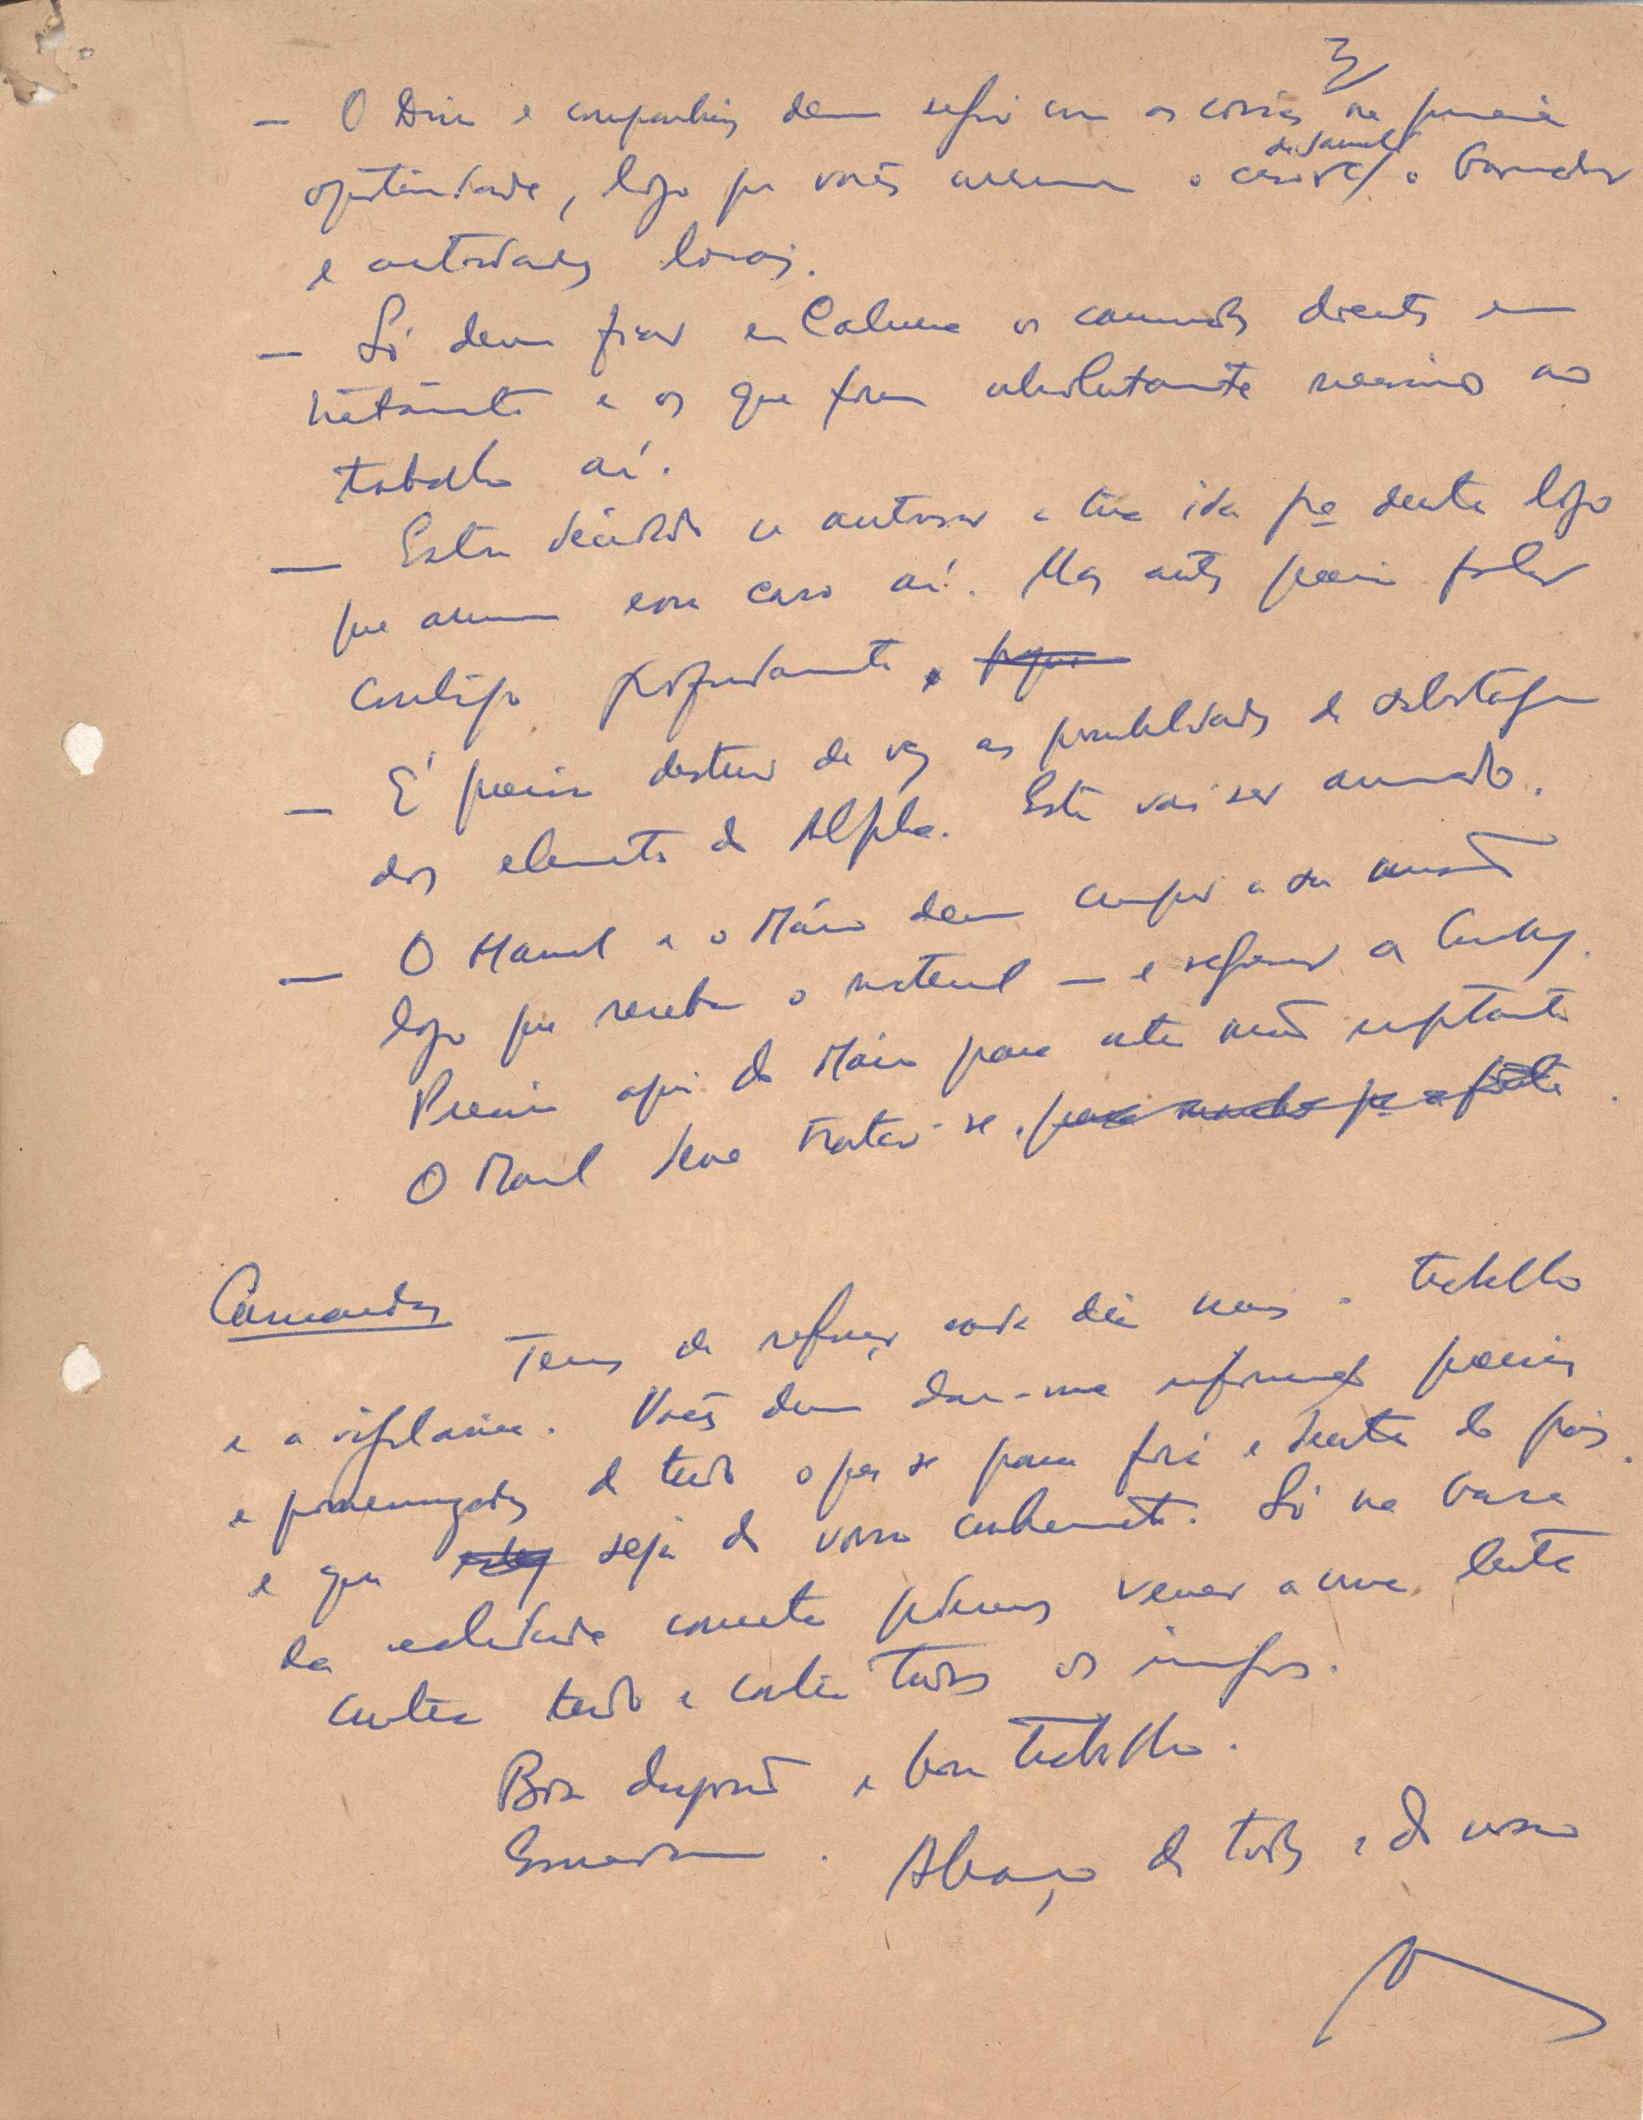 3
— O Dino e companhia devem seguir com as coisas na primeira
do Samuel
oportunidade, logo que vocês arrumem o caso c/ o Governador
e autoridades locais.
— Só devem ficar em Calunda os camaradas doentes em
tratamento e os que forem absolutamente necessários ao
trabalho aí.
— Estou decidido a autorizar a tua ida pª dentro logo
que arrumem esse caso aí. Mas antes preciso falar
contigo profundamente.
— É preciso destruir de vez as possibilidades de sabotagem
dos elementos do Alpha. Este vai ser arrumado.
— O Manuel e o Mário devem cumprir a sua missão
logo que recebam o material — e regressar a
Preciso aqui do Mário para outra missão importante
O Manuel deve tratar-se.
Camaradas
Temos de reforçar cada dia mais o trabalho
e a vigilância. Vocês devem dar-me informações precisas
e pormenorizadas de tudo o que se passa fora e dentro do país
e que seja do vosso conhecimento. Só na base
da realidade concreta podemos vencer a nossa luta
contra tudo e contra todos os inimigos.
Boa disposição e bom trabalho.
Abraço de todos e do vosso